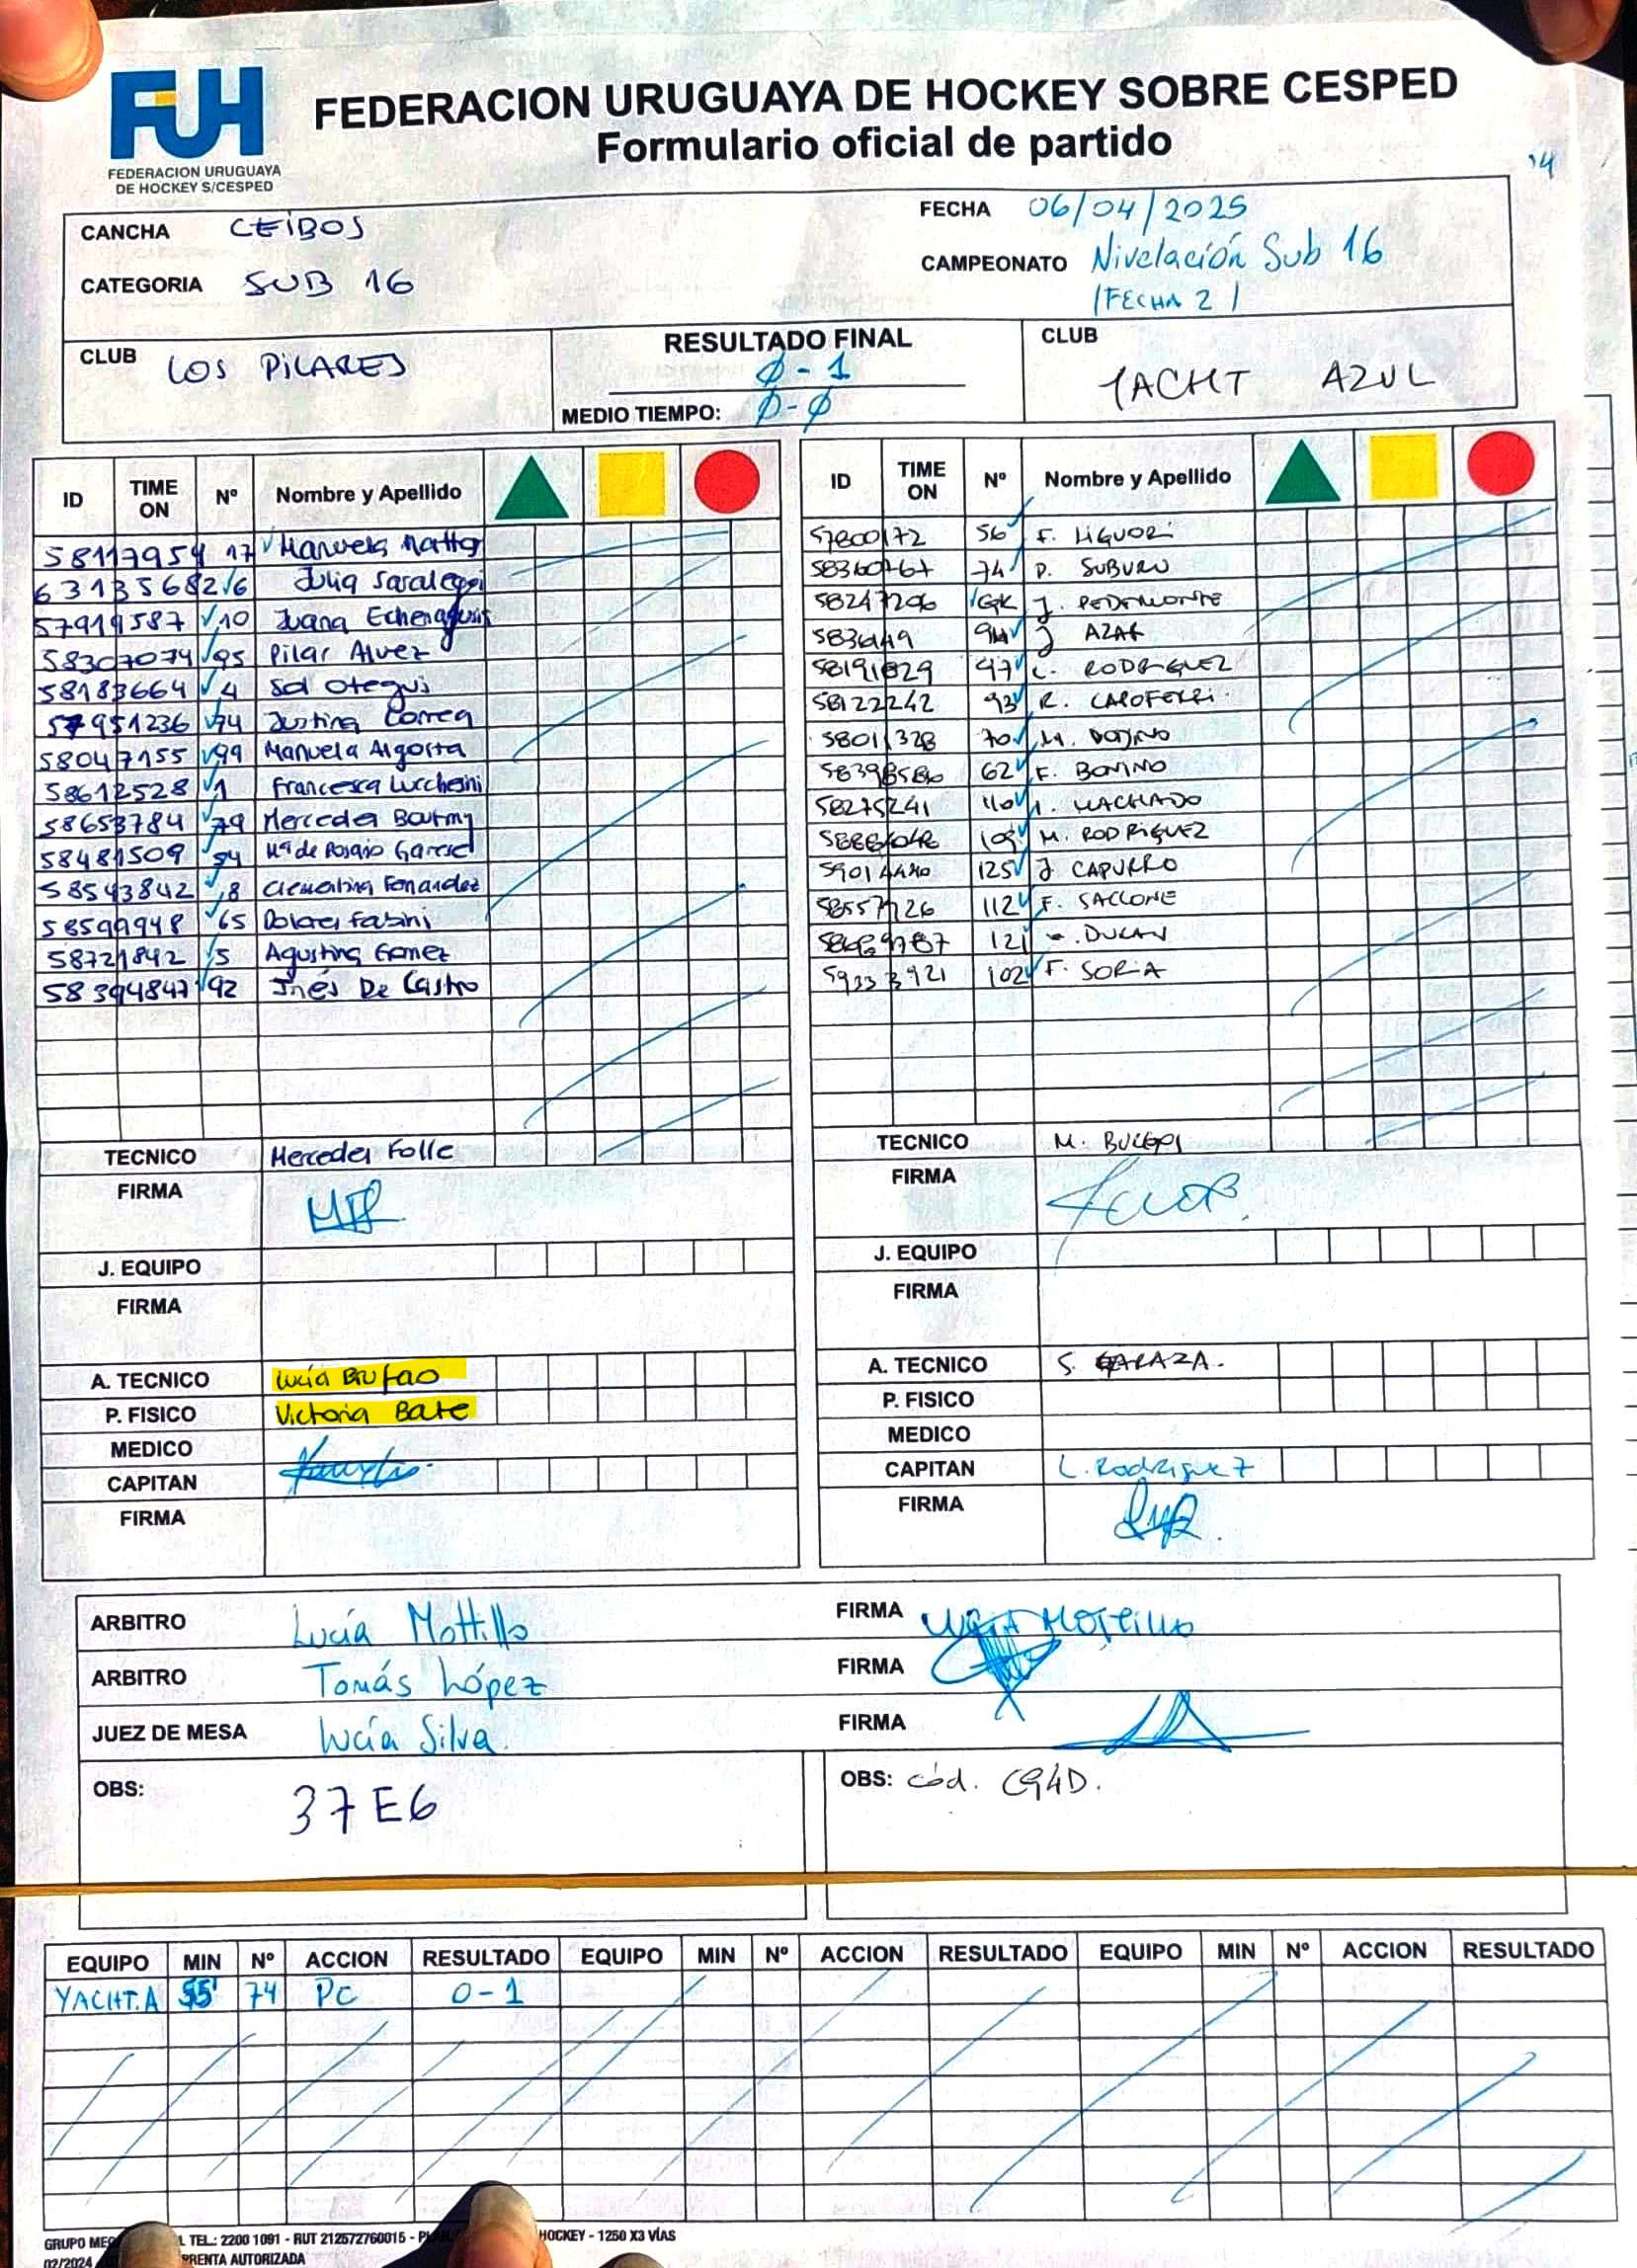 FUH
FEDERACION URUGUAYA
DE HOCKEY S/CESPED
FEDERACION URUGUAYA DE HOCKEY SOBRE CESPED
Formulario oficial de partido
CANCHA CEIBOS
FECHA 06/04/2025
CATEGORIA SUB 16
CAMPEONATO Nivelación Sub 16
(FECHA 2)
CLUB LOS PILARES
RESULTADO FINAL
Ø - 1
MEDIO TIEMPO: Ø - Ø
CLUB
YACHT AZUL
ID TIME ON Nº Nombre y Apellido
58117954 17 Manuela Mattos
63135682 6 Julia Saralegui
57919587 10 Juana
58307074 95 Pilar Alvez
58183664 4 Sol Otegui
57951236 74 Justina Correa
58047155 99 Manuela Algorta
58612528 1 Francesca Lucchesini
58653784 79 Mercedes
58481509 Mª de Rosario
58543842 18 Clementina Fernandez
58599948 65 Dolores Fabini
58721842 5 Agustina Gomez
58394847 92 Inés De Castro
TECNICO Mercedes Folle
FIRMA
J. EQUIPO
FIRMA
A. TECNICO Lucía Brufao
P. FISICO Victoria
MEDICO
CAPITAN
FIRMA
ID TIME ON Nº Nombre y Apellido
57800172 56 F. LIGUORI
74 P. SUBURU
58247206 GK J. PEDEMONTE
J
58191829 47 L. RODRIGUEZ
58122242 93 R.
58011328 70 M.
62 F. BONINO
58275241 110 MACHADO
M. RODRIGUEZ
125 J. CAPURRO
112 F. SACCONE
121 DURAN
102 F. SORIA
TECNICO M.
FIRMA
J. EQUIPO
FIRMA
A. TECNICO S.
P. FISICO
MEDICO
CAPITAN L. Rodriguez
FIRMA
ARBITRO Lucía Mottillo FIRMA
ARBITRO Tomás López FIRMA
JUEZ DE MESA Lucía Silva FIRMA
OBS: 37E6
OBS: Cód. C94D.
EQUIPO MIN Nº ACCION RESULTADO EQUIPO MIN Nº ACCION RESULTADO EQUIPO MIN Nº ACCION RESULTADO
YACHT.A 55' 74 PC 0-1
GRUPO TEL.: 2200 1091 - RUT 212572760015 - HOCKEY - 1250 X3 VÍAS
02/2024 AUTORIZADA